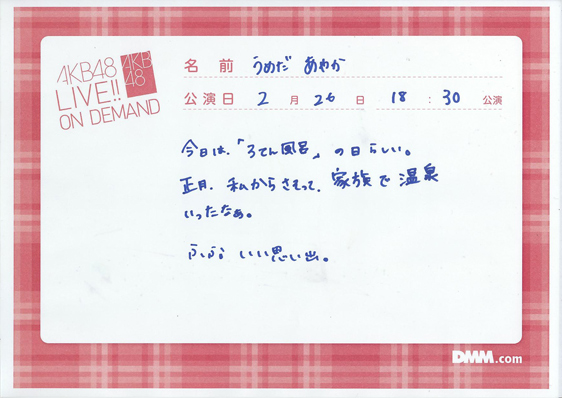 AKB48
LIVE!!
ON DEMAND
AKB
48
名前 うめだ あやか
公演日 2月26日 18:30 公演
今日は、「ろてん風呂」の日らしい。
正月、私からさそって、家族で温泉
いったなぁ。
ふふふ いい思い出。
DMM.com